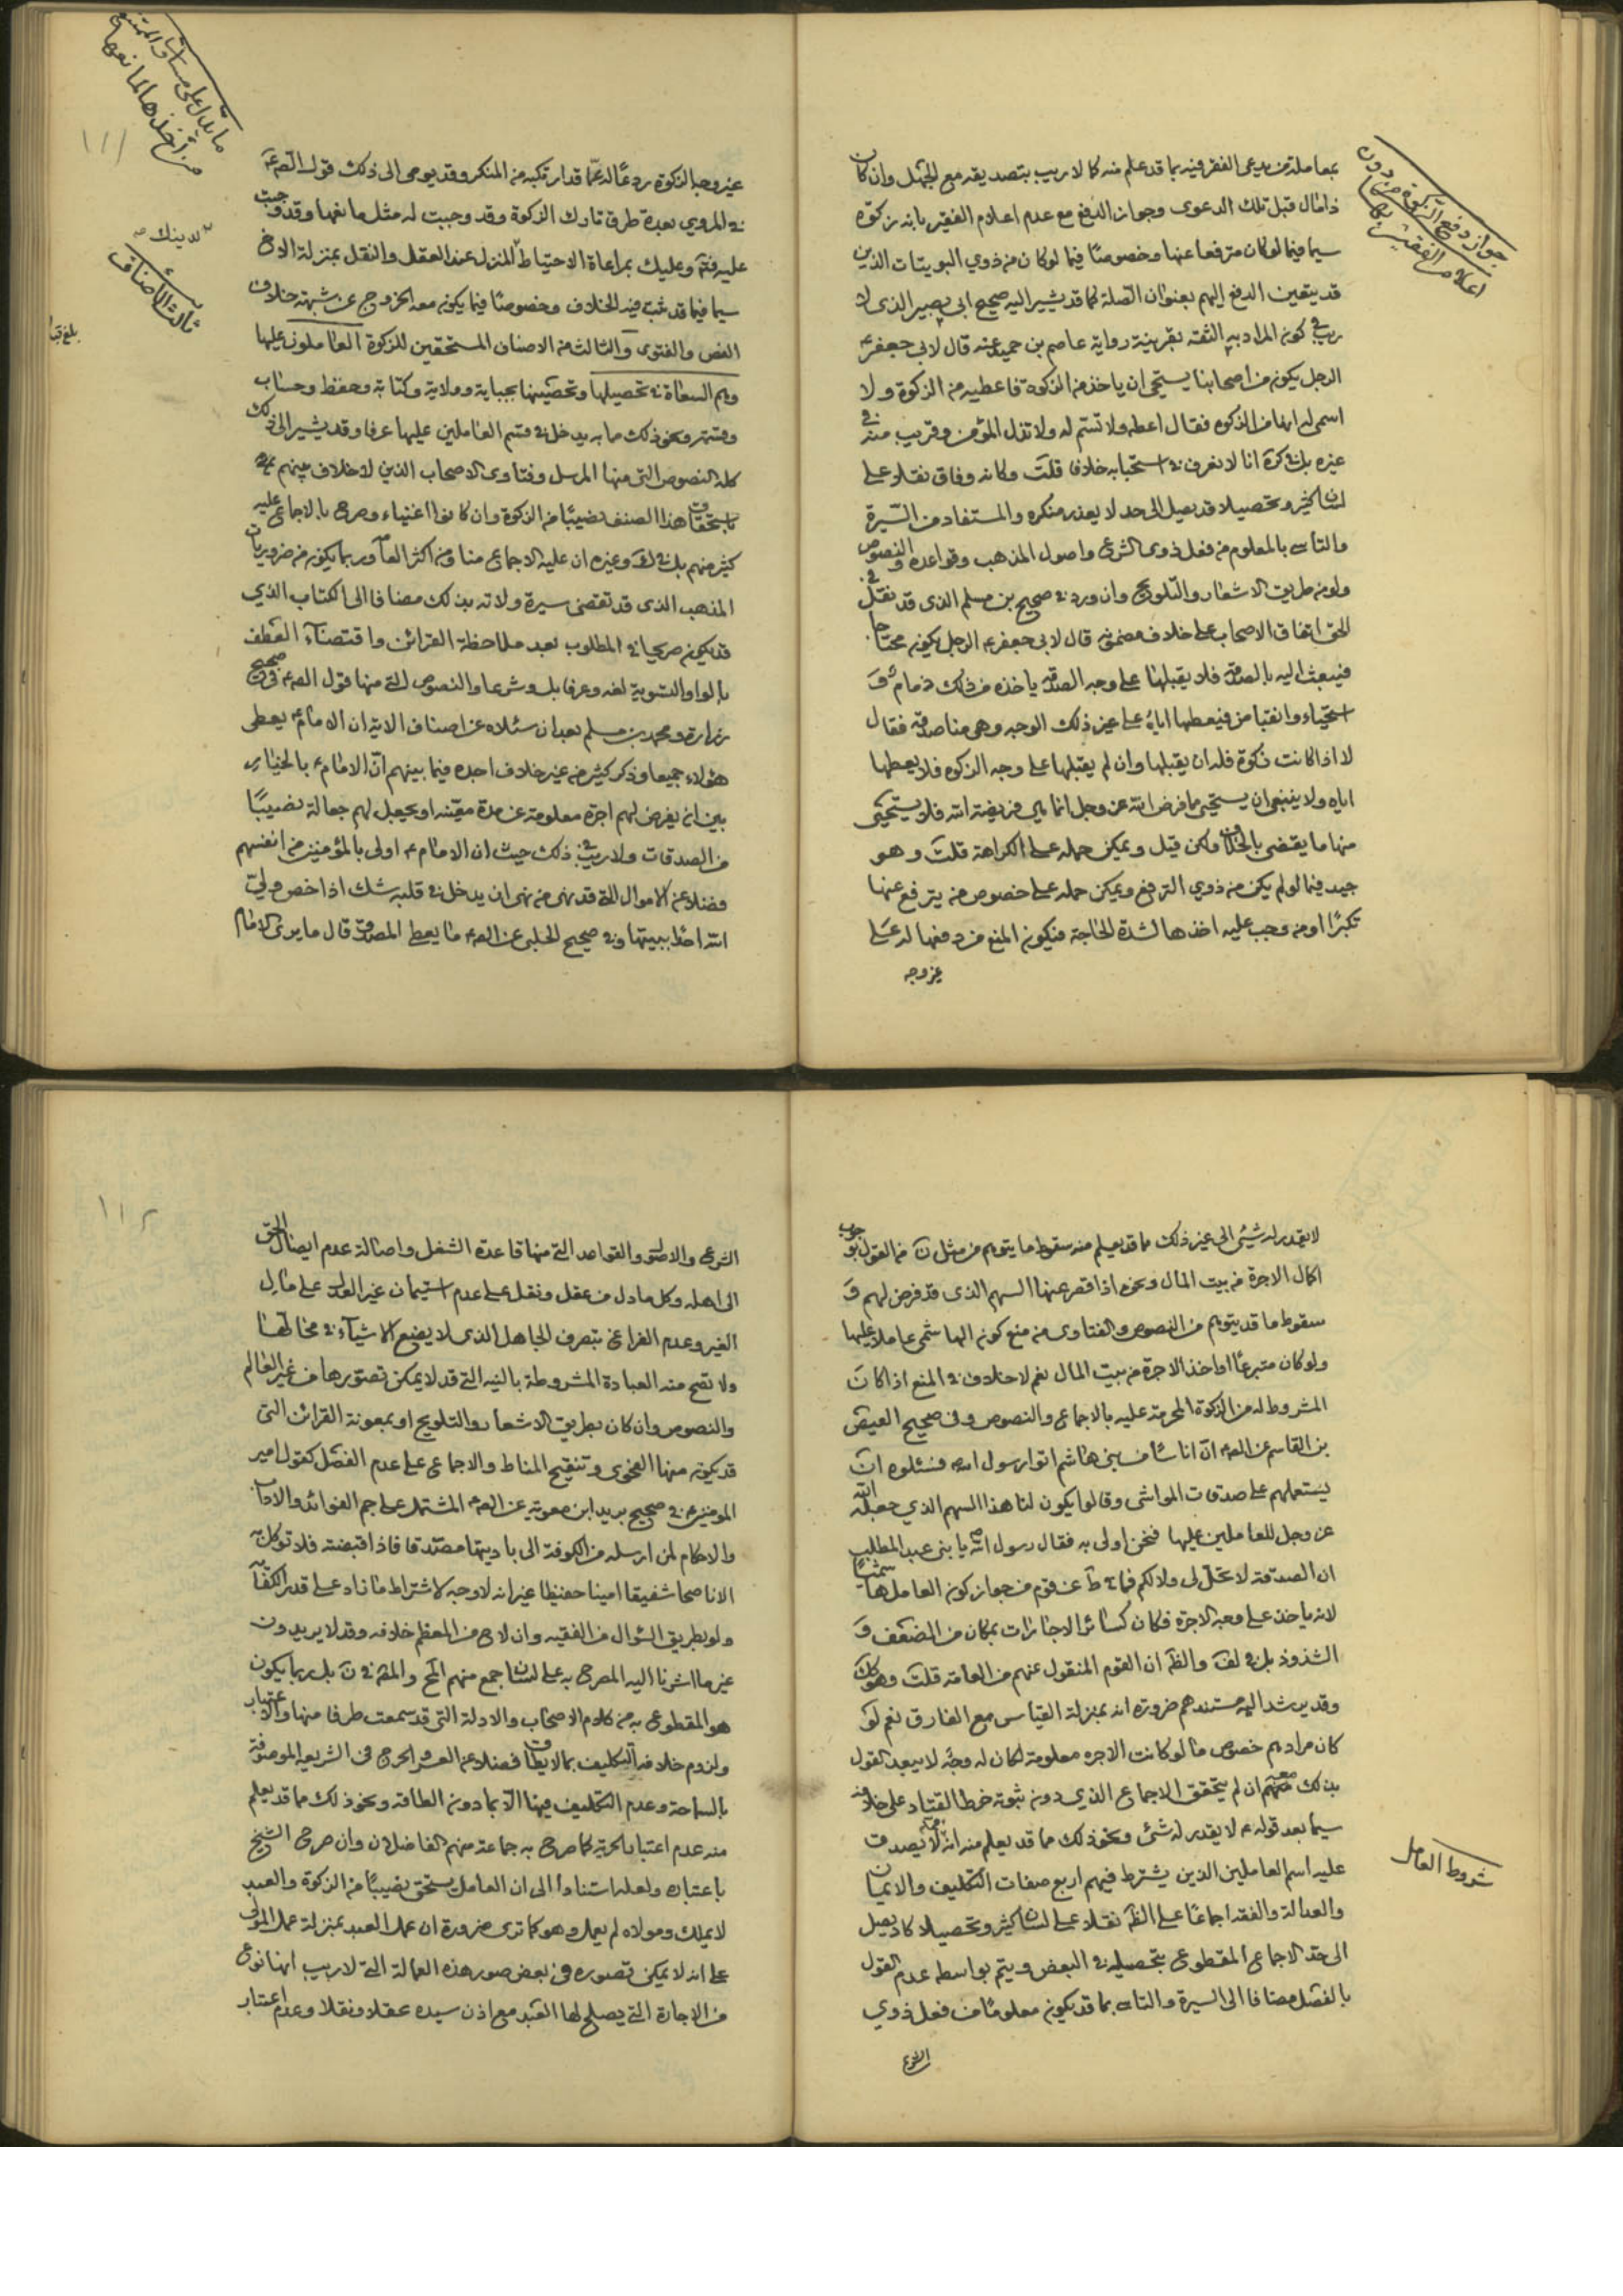 جواز دفع الزكوة من دون
اعلام الفقير بها
بمعاملة من يدعى الفقر فيه بما قد علم منه كا لا ريب بتصديقه مع الجهل وان كان
ذا مال قبل تلك الدعوى وجواز الدفع مع عدم اعلام الفقير بانه زكوة
سيما فيما لو كان مترفعا عنها وخصوصًا فيما لو كان من ذوي البويتات الذين
قد يتعين الدفع اليهم بعنوان الصلة كما قد يشير اليه صحيح ابى بصير الذى لا
ريب فى كون المراد به الثقه بقرينة رواية عاصم بن حميد عنه قال لابى جعفر ع
الرجل يكون من اصحابنا يستحى ان ياخذ من الزكوة فاعطيه من الزكوة ولا
اسمى له انها من الزكوه فقال اعطه ولا تسم له ولا تذل المؤمن وقريب منه فى
غيره بل فى كرة انا لا نعرف فى استحبابه خلافا قلت وكانه وفاق نقلا على
لسان كثير وتحصيلا قد يصل الى حد لا يعذر منكره والمستفاد من السيرة
والتاسى بالمعلوم من فعل ذوى الشرع واصول المذهب وقواعده والنصوص
ولو من طريق الاشعار والتلويح وان ورد فى صحيح بن مسلم الذى قد نقل فى
الحق اتفاق الاصحاب على خلاف مضمونه قال لابى جعفر ع الرجل يكون محتاجا
فيبعث اليه بالصدقة فلا يقبلها على وجه الصدقة ياخذه من ذلك ذمام و
استحياء وانقباض فيعطيها اياه على غير ذلك الوجه وهى منا صدقة فقال
لا اذا كانت زكوة فله ان يقبلها وان لم يقبلها على وجه الزكوه فلا يعطها
اياه ولا ينبغى ان يستحيى مما فرض الله عز وجل انما هى فريضة الله فلا يستحيى
منها ما يقتضى بالخلاف ولكن قيل ويمكن حمله على الكراهة قلت وهو
جيد فيما لو لم يكن من ذوي الترفع ويمكن حمله على خصوص من يترفع عنها
تكبرًا او من وجب عليه اخذها لشدة الحاجة فيكون المنع من دفعها له على
غير وجه
ما يدل على مساوات الممتنع
من اخذها لمانعها
١١١
غير وجه الزكوة ردعًا له عما قد ارتكبه من المنكر وقد يومى الى ذلك قول الص ع
فى المروي بعدة طرق تارك الزكوة وقد وجبت له مثل مانعها وقد وجبت
عليه فتم وعليك بمراعاة الاحتياط المنزل عند العقل والنقل بمنزلة الاخ
لدينك
سيما فيما قد ثبت فيه الخلاف وخصوصًا فيما يكون معه الخروج عن شبهة خلاف
ثالث الأصناف
النص والفتوى والثالث من الاصناف المستحقين للزكوة العاملون عليها
بلغ قبا
وهم السعاة فى تحصيلها وتحصينها بجباية وولاية وكتابة وحفظ وحساب
وقسمة ونحو ذلك ما به يدخل فى قسم العاملين عليها عرفا وقد يشير الى ذلك
كله النصوص التى منها المرسل وفتاوى الاصحاب الذين لا خلاف بينهم فى
استحقاق هذا الصنف نصيبًا من الزكوة وان كانوا اغنياء وصرح بالاجماع عليه
كثير منهم بل فى لف وغيره ان عليه الاجماع منا ومن اكثر العامة وربما يكون من ضروريات
المذهب الذى قد تقضى سيرة ولاته بذلك مضافا الى الكتاب الذي
قد يكون صريحا فى المطلوب بعد ملاحظة القرائن واقتضاء العطف
بالواو التسوية لغه وعرفا بل وشرعا والنصوص التى منها قول الص ع فى صحيح
زرارة ومحمد بن مسلم بعد ان سئلاه عن اصناف الاية ان الامام ع يعطى
هؤلاء جميعا وذكر كثير من غير خلاف اجده فيما بينهم انّ الامام ع بالخيار
بين ان يفرض لهم اجرة معلومة عن مدة معينه او يجعل لهم جعالة نصيبًا
من الصدقات ولا ريب فى ذلك حيث ان الامام ع اولى بالمؤمنين من انفسهم
فضلا عن الاموال التى قد نهى من نهى ان يدخل فى قلبه شك اذا خص ولىّ
الله احدا ببيتها وفى صحيح الحلبى عن الص ع ما يعطى المصدق قال ما يرى الامام
لا يقدر له شيئى الى غير ذلك مما قد يعلم منه سقوط ما يتوهم من مثل ن من القول بوجوب
اكمال الاجرة من بيت المال ونحوه اذا قصر عنها السهم الذى قد فرض لهم و
سقوط ما قد يتوهم من النصوص والفتاوى من منع كون الهاشمى عاملا عليها
ولو كان متبرعًا او اخذ الاجرة من بيت المال نعم لا خلاف فى المنع اذا كان
المشروط له من الزكوة المحرمة عليه بالاجماع والنصوص وفى صحيح العيص
بن القاسم عن الص ع ان اناسًا من بنى هاشم اتوا رسول الله ص فسئلوه ان
يستعملهم على صدقات المواشى وقالوا يكون لنا هذا السهم الذي جعله الله
عز وجل للعاملين عليها فنحن اولى به فقال رسول الله ص يا بنى عبد المطلب
ان الصدقة لا تحل لى ولا لكم فما فى ط عن قوم من جواز كون العامل هاشميًا
لانه ياخذ على وجه الاجرة فكان كسائر الاجارات بمكان من الضعف و
الشذوذ بل فى لف والظ ان القوم المنقول عنهم من العامة قلت وهو كك
وقد يرشد اليه مستندهم ضرورة انه بمنزلة القياس مع الفارق نعم لو
كان مرادهم خصوص ما لو كانت الاجره معلومة لكان له وجه لا يبعد القول
بذلك معهم ان لم يتحقق الاجماع الذي دون ثبوته خرط القتاد على خلافه
سيما بعد قوله ع لا يقدر له شئ ونحو ذلك مما قد يعلم منه انه لا يصدق
شروط العامل
عليه اسم العاملين الذين يشترط فيهم اربع صفات التكليف والايمان
والعدالة والفقه اجماعًا على الظ نقلا على لسان كثير وتحصيلا كاد يصل
الى حد الاجماع المقطوع بتحصيله فى البعض ويتم بواسطه عدم القول
بالفصل مضافا الى السيرة والتاسى بما قد يكون معلومًا من فعل ذوي
الشرع
١١٢
الشرع والاصول والقواعد التى منها قاعدة الشغل واصالة عدم ايصال الحق
الى اهله وكل ما دل من عقل ونقل على عدم استيمان غير العدل على مال
الغير وعدم الفراغ بتصرف الجاهل الذى لا يضع الاشياء فى محالها
ولا تصح منه العبادة المشروطة بالنيه التى قد لا يمكن تصورها من غير العالم
والنصوص وان كان بطريق الاشعار والتلويح او بمعونة القرائن التى
قد يكون منها الفحوى وتنقيح المناط والاجماع على عدم الفصل كقول امير
المؤمنين ع فى صحيح بريد ابن معوية عن الص ع المشتمل على جم الفوائد والاداب
والاحكام لمن ارسله من الكوفة الى باديتها مصدقا فاذا قبضته فلا توكل به
الا ناصحا شفيقا امينا حفيظا غير انه لا وجه لاشتراط ما زاد على قدر الكفاية
ولو بطريق السؤال من الفقيه وان لاح من المعظم خلافه وقد لا يريدون
غير ما اشرنا اليه المصرح به على لسان جمع منهم المح والمقد فى ن بل ربما يكون
هو المقطوع به من كلام الاصحاب والادلة التى قد سمعت طرفا منها والاعتبار
ولزوم خلافه التكليف بما لا يطاق فضلا عن العسر والحرج فى الشريعه الموصوفة
بالسماحة وعدم التكليف فيها الا بما دون الطاقه ونحو ذلك مما قد يعلم
منه عدم اعتبار الحرية كما صرح به جماعة منهم الفاضلان وان صرح الشيخ
باعتباره ولعله استنادا الى ان العامل يستحق نصيبًا من الزكوة والعبد
لا يملك ومولاه لم يعمل وهو كما ترى ضرورة ان عمل العبد بمنزلة عمل المولى
على انه لا يمكن تصوره فى بعض صور هذه العمالة التى لا ريب انها نوع
من الاجارة التى يصلح لها العبد مع اذن سيده عقلا ونقلا وعدم اعتبار